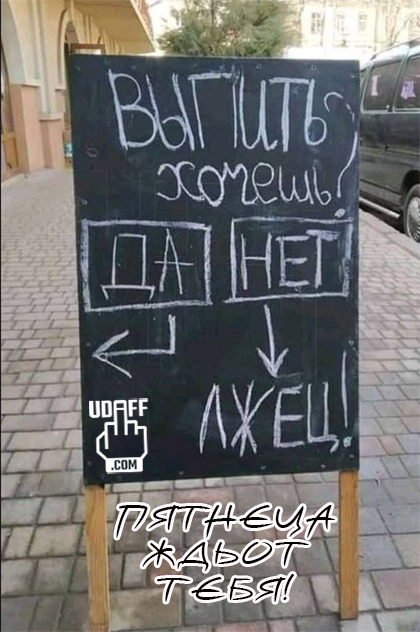 ВЫПИТЬ
хочешь?
ДА НЕТ
ЛЖЕЦ!
UDAFF
.COM
ПЯТНЄЦА
ЖДЬОТ
ТЄБЯ!